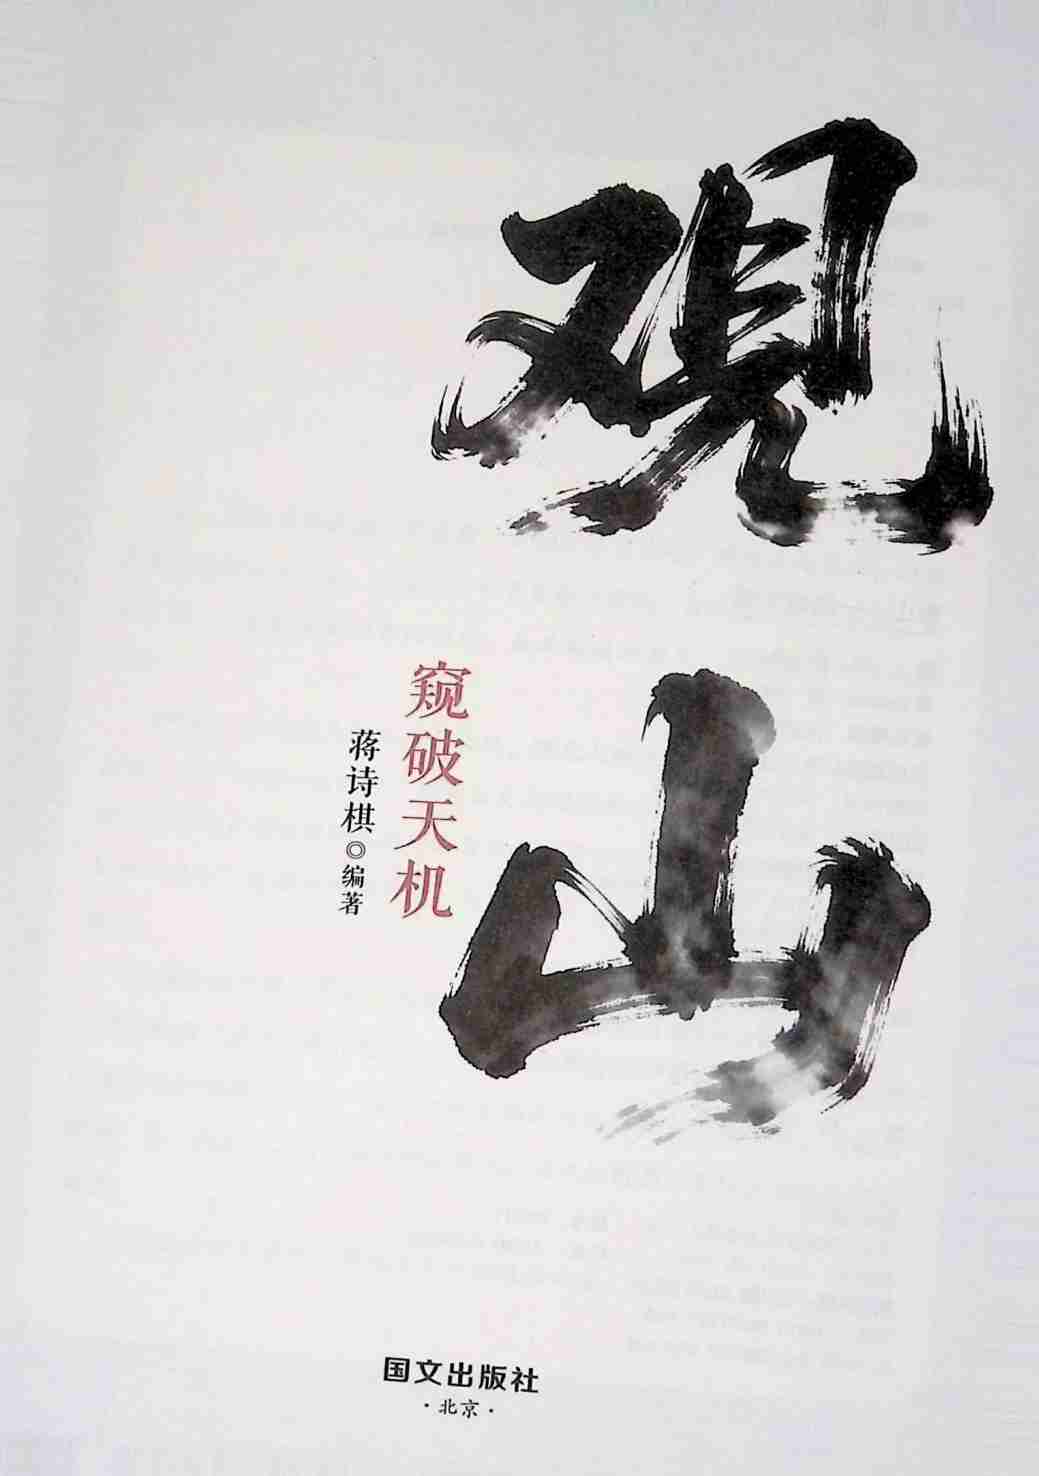 观山
窥破天机
蒋诗棋◎编著
国文出版社
·北京·